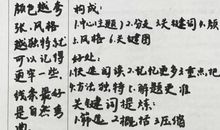 颜色越夸
张、风格
越独特就
可以记得
更牢一些,
线条最好
是自然弯
曲
构成:
1.中心主题 2.分支 3.关键词 4.颜
5.风格 6.关键图
好处:
1.快速阅读、2.记忆更多重点,把
方法独特、解题更准
关键词提炼:
1.解题 2.概括 3.压缩